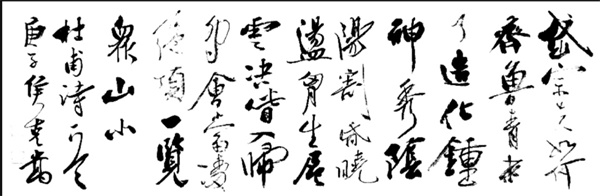 岱宗夫如何
齊魯青未
了造化鍾
神秀陰
陽割昏曉
盪胸生層
雲決眥入歸
鳥會當凌
絕頂一覽
眾山小
杜甫詩
庚子侯